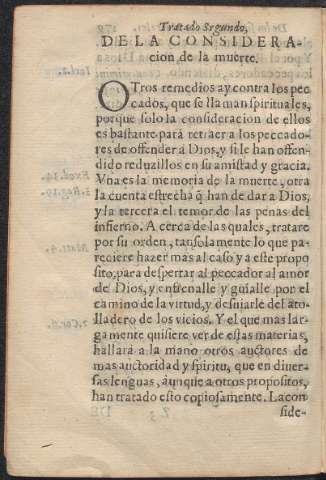 Tratado Segundo,
DE LA CONSIDERA-
cion de la muerte.
OTros remedios ay contra los pec
cados, que se llaman spirituales,
porque solo la consideracion de ellos
es bastante para retraer a los peccado-
res de offender a Dios, y si le han offen-
dido reduzillos en su amistad y gracia.
Vna es la memoria de la muerte, otra
la cuenta estrecha q̃ han de dar a Dios,
y la tercera el temor de las penas del
infierno. A cerca de las quales, tratare
por su orden, tansolamente lo que pa-
reciere hazer mas al caso y a este propo
sito, para despertar al peccador al amor
de Dios, y enfrenalle y guialle por el
camino de la virtud, y desuialle del ato-
lladero de los vicios. Y el que mas lar-
gamente quisiere ver de estas materias,
hallara a la mano otros auctores de
mas auctoridad y spiritu, que en diuer-
sas lenguas, aunque a otros propositos,
han tratado esto copiosamente. La con
side-